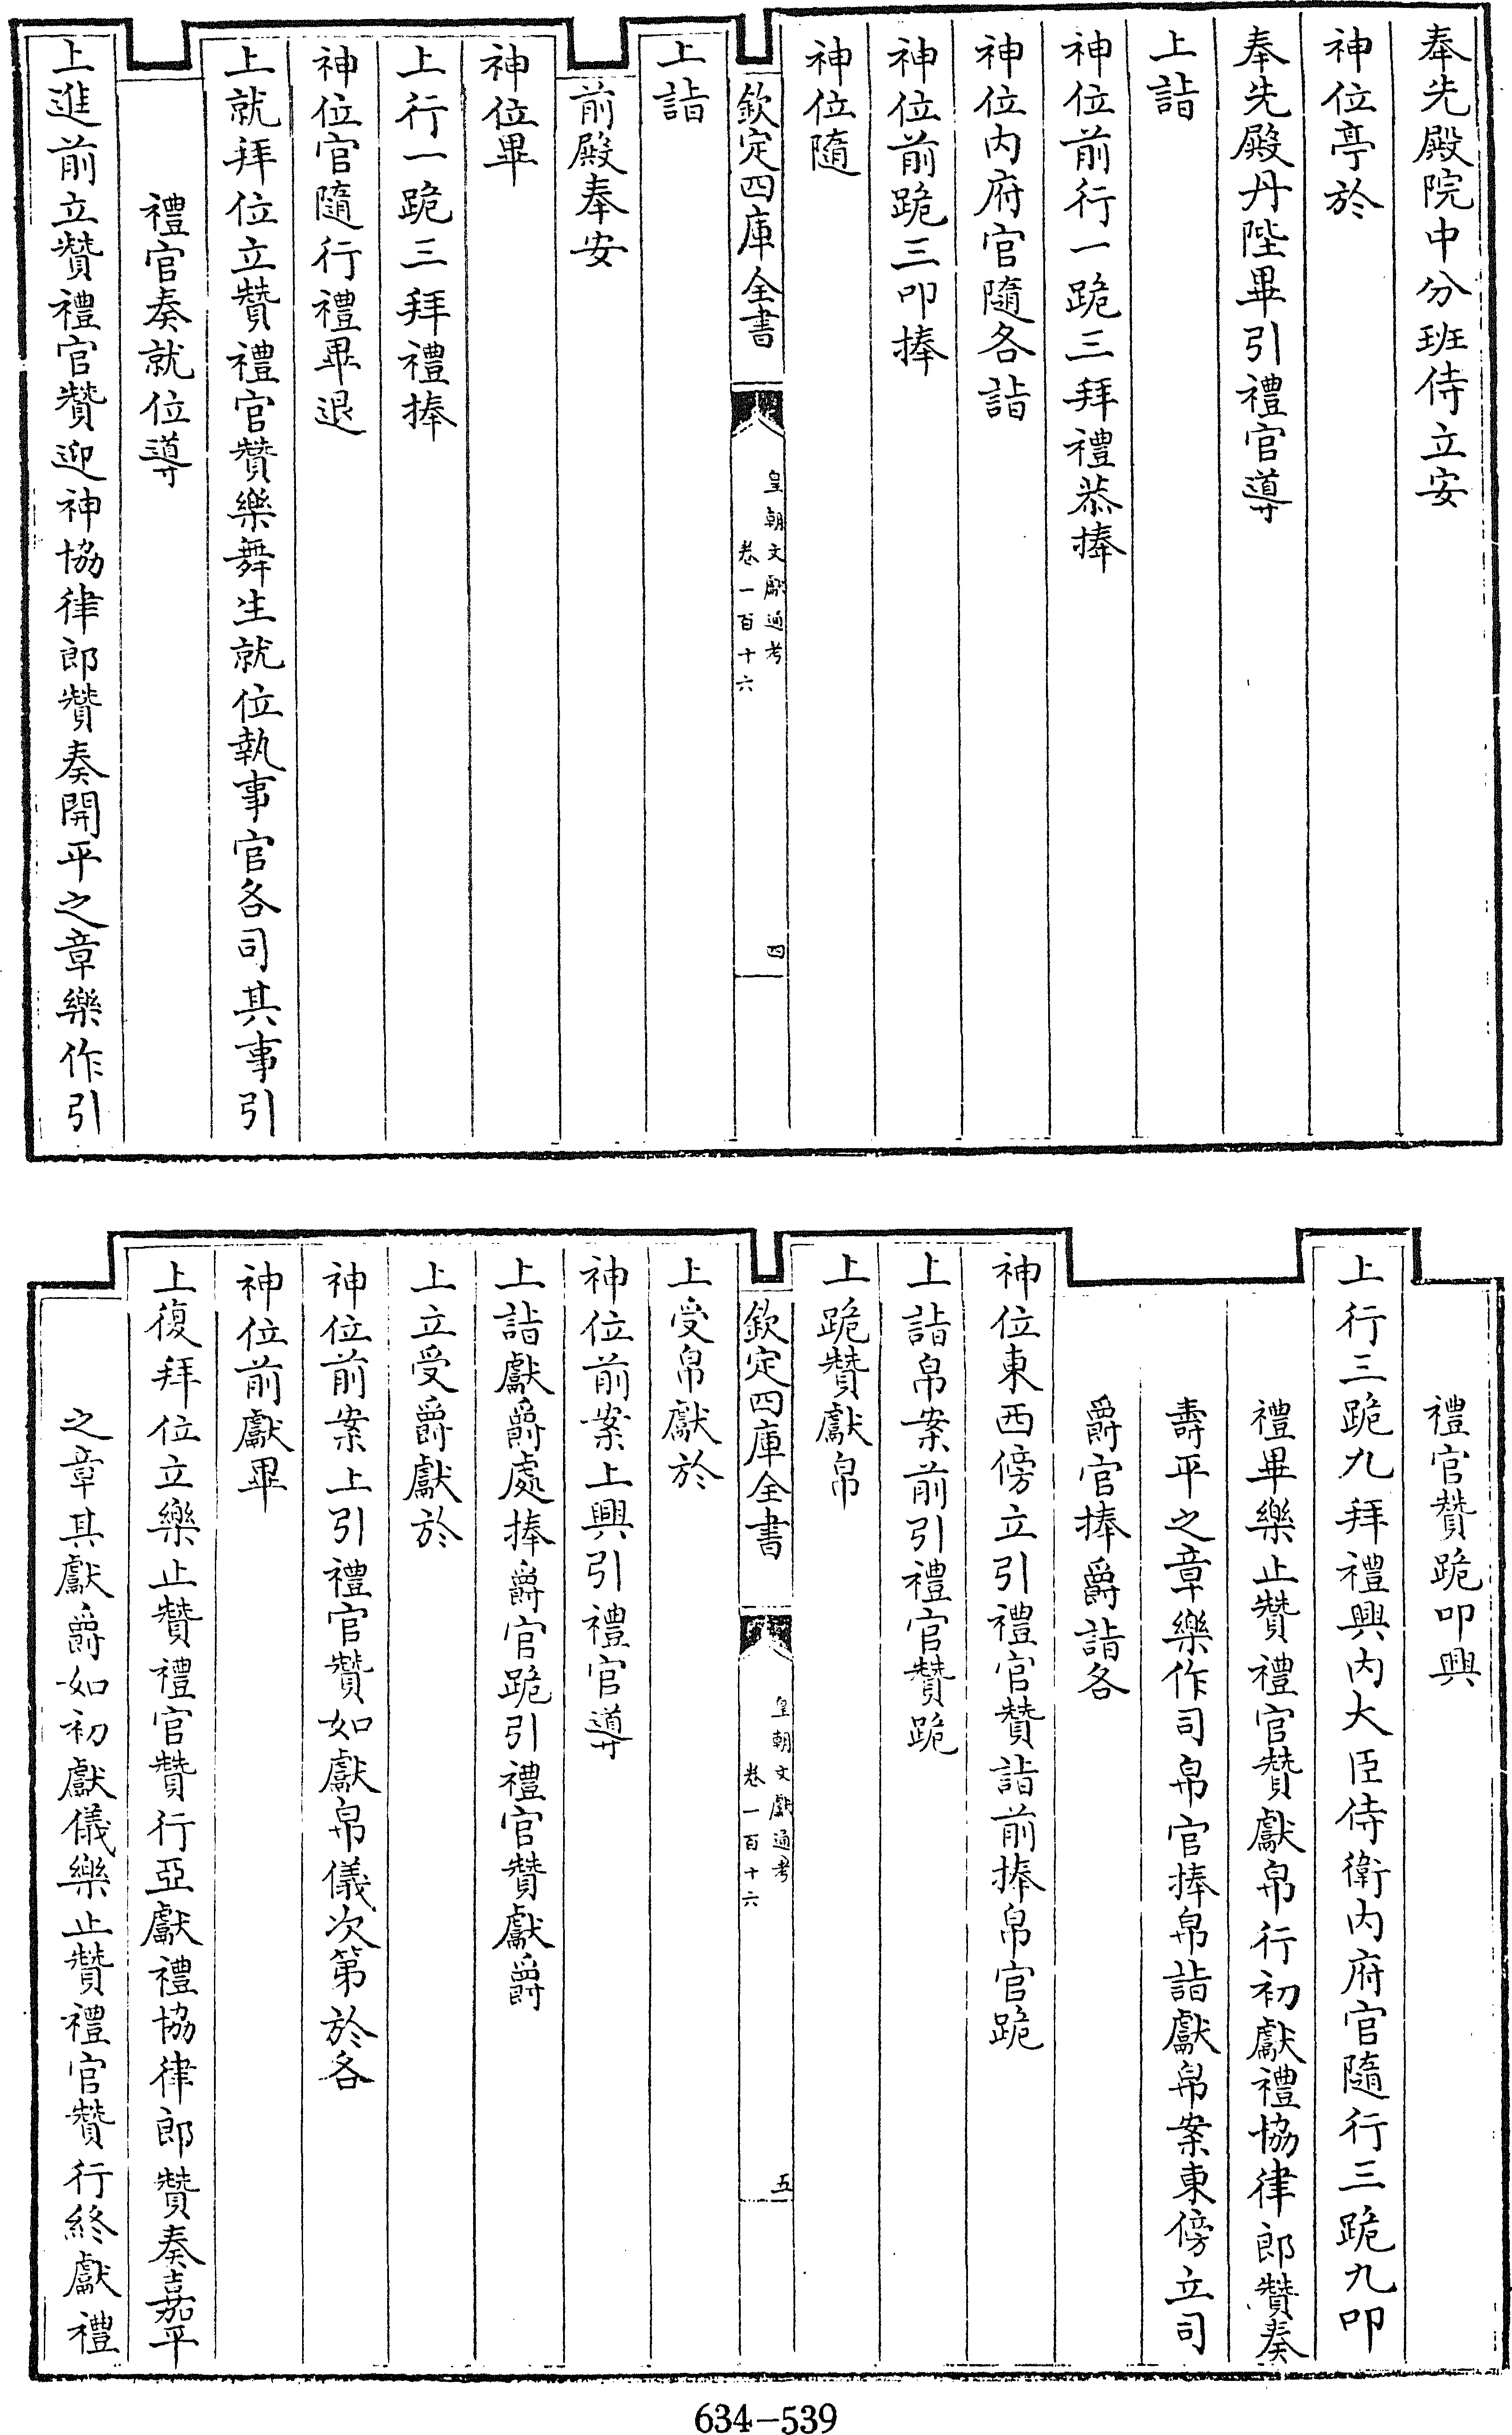 奉先殿院中分班侍立安
神位亭於
奉先殿丹陛畢引禮官導
上詣
神位前行一跪三拜禮恭捧
神位內府官隨各詣
神位前跪三叩捧
神位隨
欽定四庫全書
皇朝文獻通考
卷一百十六
四
上詣
前殿奉安
神位畢
上行一跪三拜禮捧
神位官隨行禮畢退
上就拜位立贊禮官贊樂舞生就位執事官各司其事引
禮官奏就位導
上進前立贊禮官贊迎神協律郎贊奏開平之章樂作引
禮官贊跪叩興
上行三跪九拜禮興內大臣侍衛內府官隨行三跪九叩
禮畢樂止贊禮官贊獻帛行初獻禮協律郎贊奏
壽平之章樂作司帛官捧帛詣獻帛案東傍立司
爵官捧爵詣各
神位東西傍立引禮官贊詣前捧帛官跪
上詣帛案前引禮官贊跪
上跪贊獻帛
欽定四庫全書
皇朝文獻通考
卷一百十六
五
上受帛獻於
神位前案上興引禮官導
上詣獻爵處捧爵官跪引禮官贊獻爵
上立受爵獻於
神位前案上引禮官贊如獻帛儀次第於各
神位前獻畢
上復拜位立樂止贊禮官贊行亞獻禮協律郎贊奏嘉平
之章其獻爵如初獻儀樂止贊禮官贊行終獻禮
634-539